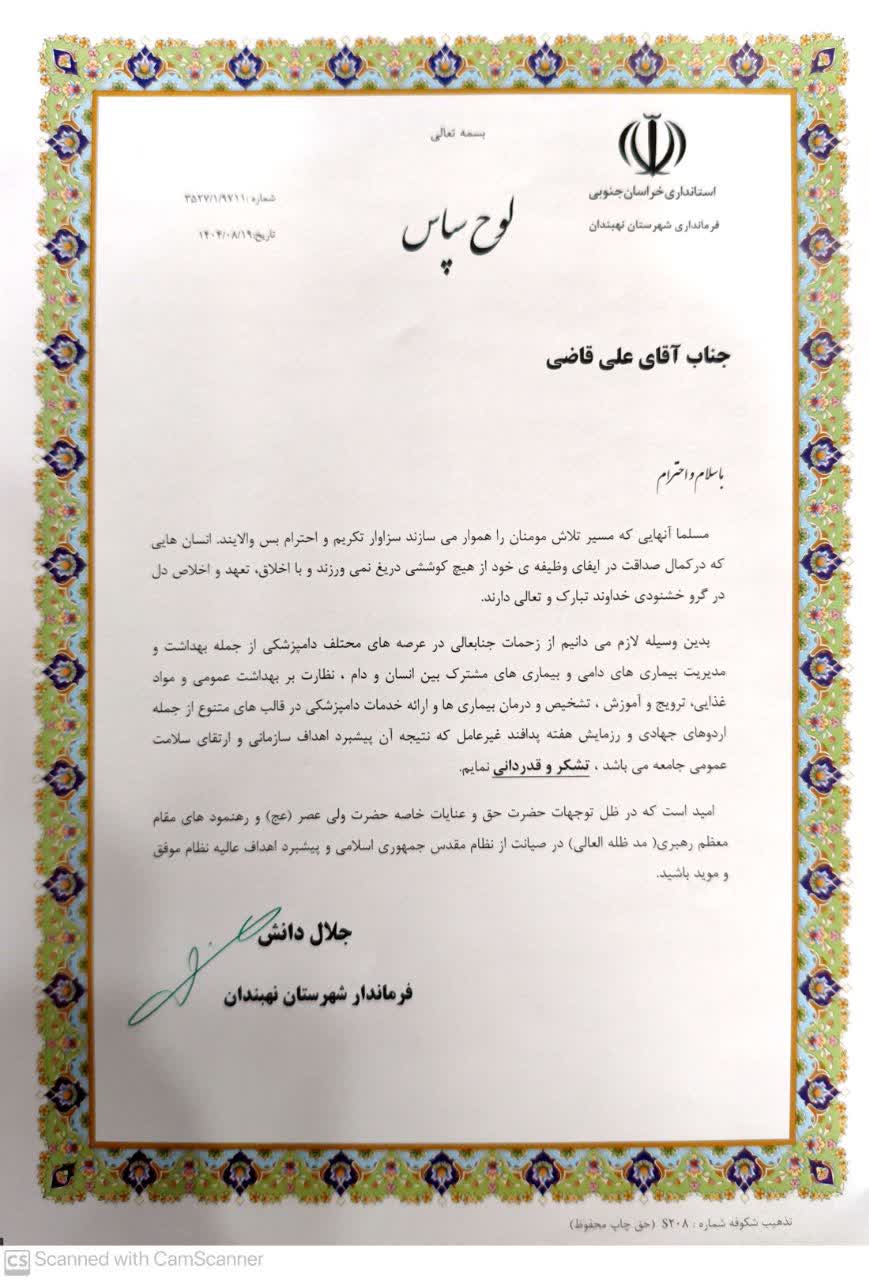 بسمه تعالی
استانداری خراسان جنوبی
فرمانداری شهرستان نهبندان
شماره :۳۵۲۷/۱/۹۷۱۱
تاریخ:۱۴۰۴/۰۸/۱۹
لوح سپاس
جناب آقای علی قاضی
باسلام و احترام
مسلما آنهایی که مسیر تلاش مومنان را هموار می سازند سزاوار تکریم و احترام بس والایند. انسان هایی
که درکمال صداقت در ایفای وظیفه ی خود از هیچ کوششی دریغ نمی ورزند و با اخلاق، تعهد و اخلاص دل
در گرو خشنودی خداوند تبارک و تعالی دارند.
بدین وسیله لازم می دانیم از زحمات جنابعالی در عرصه های مختلف دامپزشکی از جمله بهداشت و
مدیریت بیماری های دامی و بیماری های مشترک بین انسان و دام ، نظارت بر بهداشت عمومی و مواد
غذایی، ترویج و آموزش ، تشخیص و درمان بیماری ها و ارائه خدمات دامپزشکی در قالب های متنوع از جمله
اردوهای جهادی و رزمایش هفته پدافند غیرعامل که نتیجه آن پیشبرد اهداف سازمانی و ارتقای سلامت
عمومی جامعه می باشد ، تشکر و قدردانی نمایم.
امید است که در ظل توجهات حضرت حق و عنایات خاصه حضرت ولی عصر (عج) و رهنمود های مقام
معظم رهبری( مد ظله العالی) در صیانت از نظام مقدس جمهوری اسلامی و پیشبرد اهداف عالیه نظام موفق
و موید باشید.
جلال دانش
فرماندار شهرستان نهبندان
تذهیب شکوفه شماره : S۲۰۸ (حق چاپ محفوظ)
CS Scanned with CamScanner